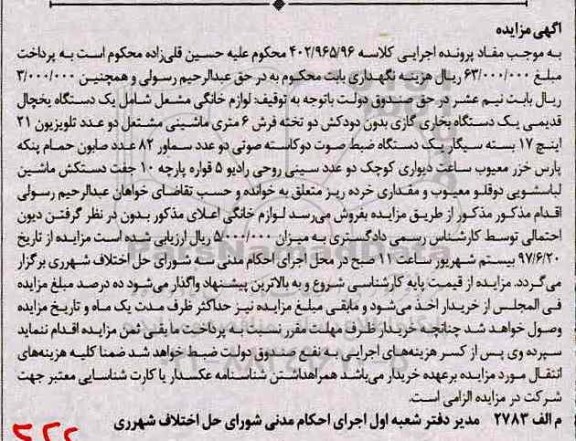 آگهی مزایده
به موجب مفاد پرونده اجرایی کلاسه ۴۰۲/۹۶۵/۹۶ محکوم علیه حسین قلی‌زاده محکوم است به پرداخت
مبلغ ۶۳/۰۰۰/۰۰۰ ریال هزینه نگهداری بابت محکوم به در حق عبدالرحیم رسولی و همچنین ۳/۰۰۰/۰۰۰
ریال بابت نیم عشر در حق صندوق دولت باتوجه به توقیف: لوازم خانگی مشعل شامل یک دستگاه یخچال
قدیمی یک دستگاه بخاری گازی بدون دودکش دو تخته فرش ۶ متری ماشینی مشتعل دو عدد تلویزیون ۲۱
اینچ ۱۷ بسته سیگار یک دستگاه ضبط صوت دوکاسته صوتی دو عدد سماور ۸۲ عدد صابون حمام پنکه
پارس خزر معیوب ساعت دیواری کوچک دو عدد سینی روحی رادیو ۵ قواره پارچه ۱۰ جفت دستکش ماشین
لباسشویی دوقلو معیوب و مقداری خرده ریز متعلق به خوانده و حسب تقاضای خواهان عبدالرحیم رسولی
اقدام مذکور مذکور از طریق مزایده بفروش می‌رسد لوازم خانگی اعلای مذکور بدون در نظر گرفتن دیون
احتمالی توسط کارشناس رسمی دادگستری به میزان ۵/۰۰۰/۰۰۰ ریال ارزیابی شده است مزایده از تاریخ
۹۷/۶/۲۰ بیستم شهریور ساعت ۱۱ صبح در محل اجرای احکام مدنی سه شورای حل اختلاف شهرری برگزار
می‌گردد. مزایده از قیمت پایه کارشناسی شروع و به بالاترین پیشنهاد واگذار می‌شود ده درصد مبلغ مزایده
فی المجلس از خریدار اخذ می‌شود و مابقی مبلغ مزایده نیز حداکثر ظرف مدت یک ماه و تاریخ مزایده
وصول خواهد شد چنانچه خریدار ظرف مهلت مقرر نسبت به پرداخت ما بقی ثمن مزایده اقدام ننماید
سپرده وی پس از کسر هزینه‌های اجرایی به نفع صندوق دولت ضبط خواهد شد ضمنا کلیه هزینه‌های
انتقال مورد مزایده برعهده خریدار می‌باشد همراهداشتن شناسنامه عکسدار یا کارت شناسایی معتبر جهت
شرکت در مزایده الزامی است.
م الف ۲۷۸۳ مدیر دفتر شعبه اول اجرای احکام مدنی شورای حل اختلاف شهرری